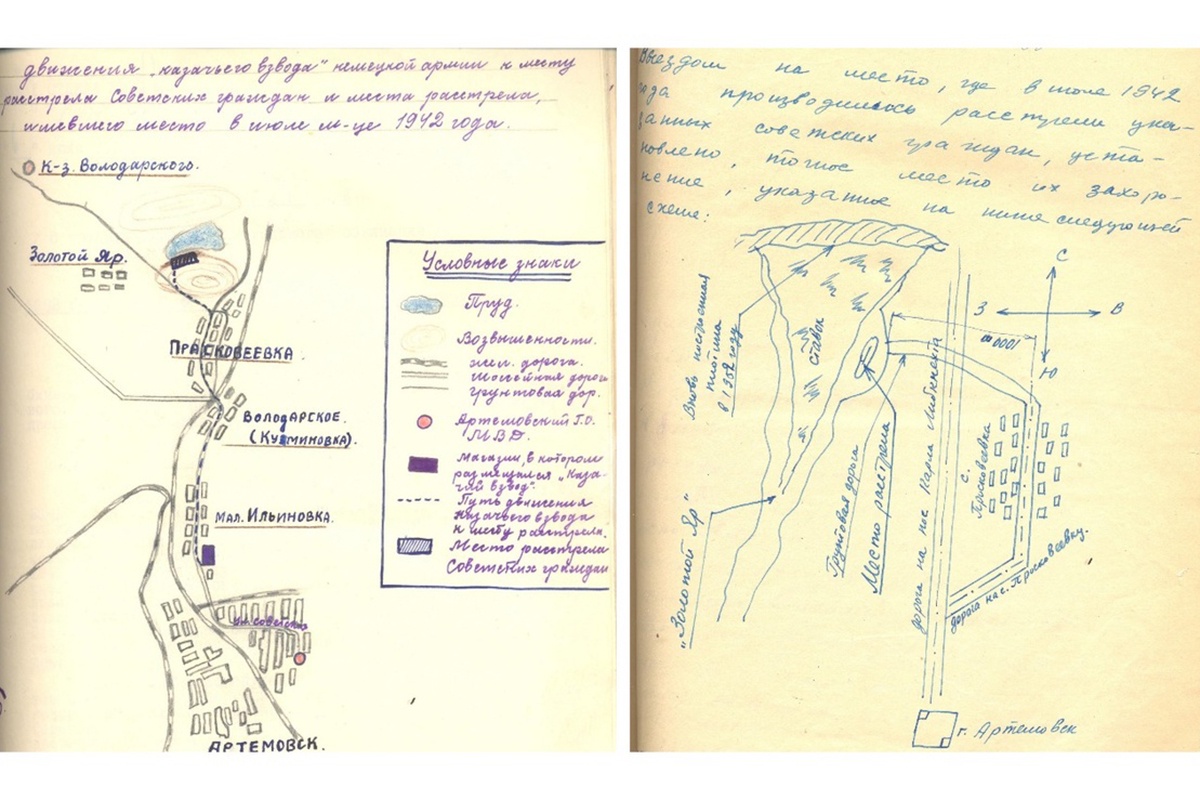 движения „казачьего взвода" немецкой армии к месту
расстрела Советских граждан и места расстрела,
имевшего место в июле м-це 1942 года.
К-з. Володарского.
Золотой Яр.
Прасковеевка
Володарское.
(Кузьминовка)
Мал. Ильиновка.
ул. Советская
Артемовск.
Условные знаки
Пруд.
Возвышенности.
жел. дорога.
Шоссейная дорога
грунтовая дор.
Артемовский Г.О.
МВД.
Магазин, в котором
размещался „Каза-
чий взвод".
Путь движения
казачьего взвода
к месту расстрела.
Место расстрела
Советских граждан
Выездом на место, где в июле 1942
года производились расстрелы ука-
занных советских граждан, уста-
новлено, точное место их захоро-
нение, указанное на нижеследующей
схеме:
Вновь построенная
плотина
в 1952 году
ставок
С
З
В
Ю
1000 м
с.
Прасковеевка
„Золотой Яр"
Грунтовая дорога
Место расстрела
дорога на пос. Карла Либкнехта
дорога на с. Прасковеевку.
г. Артемовск